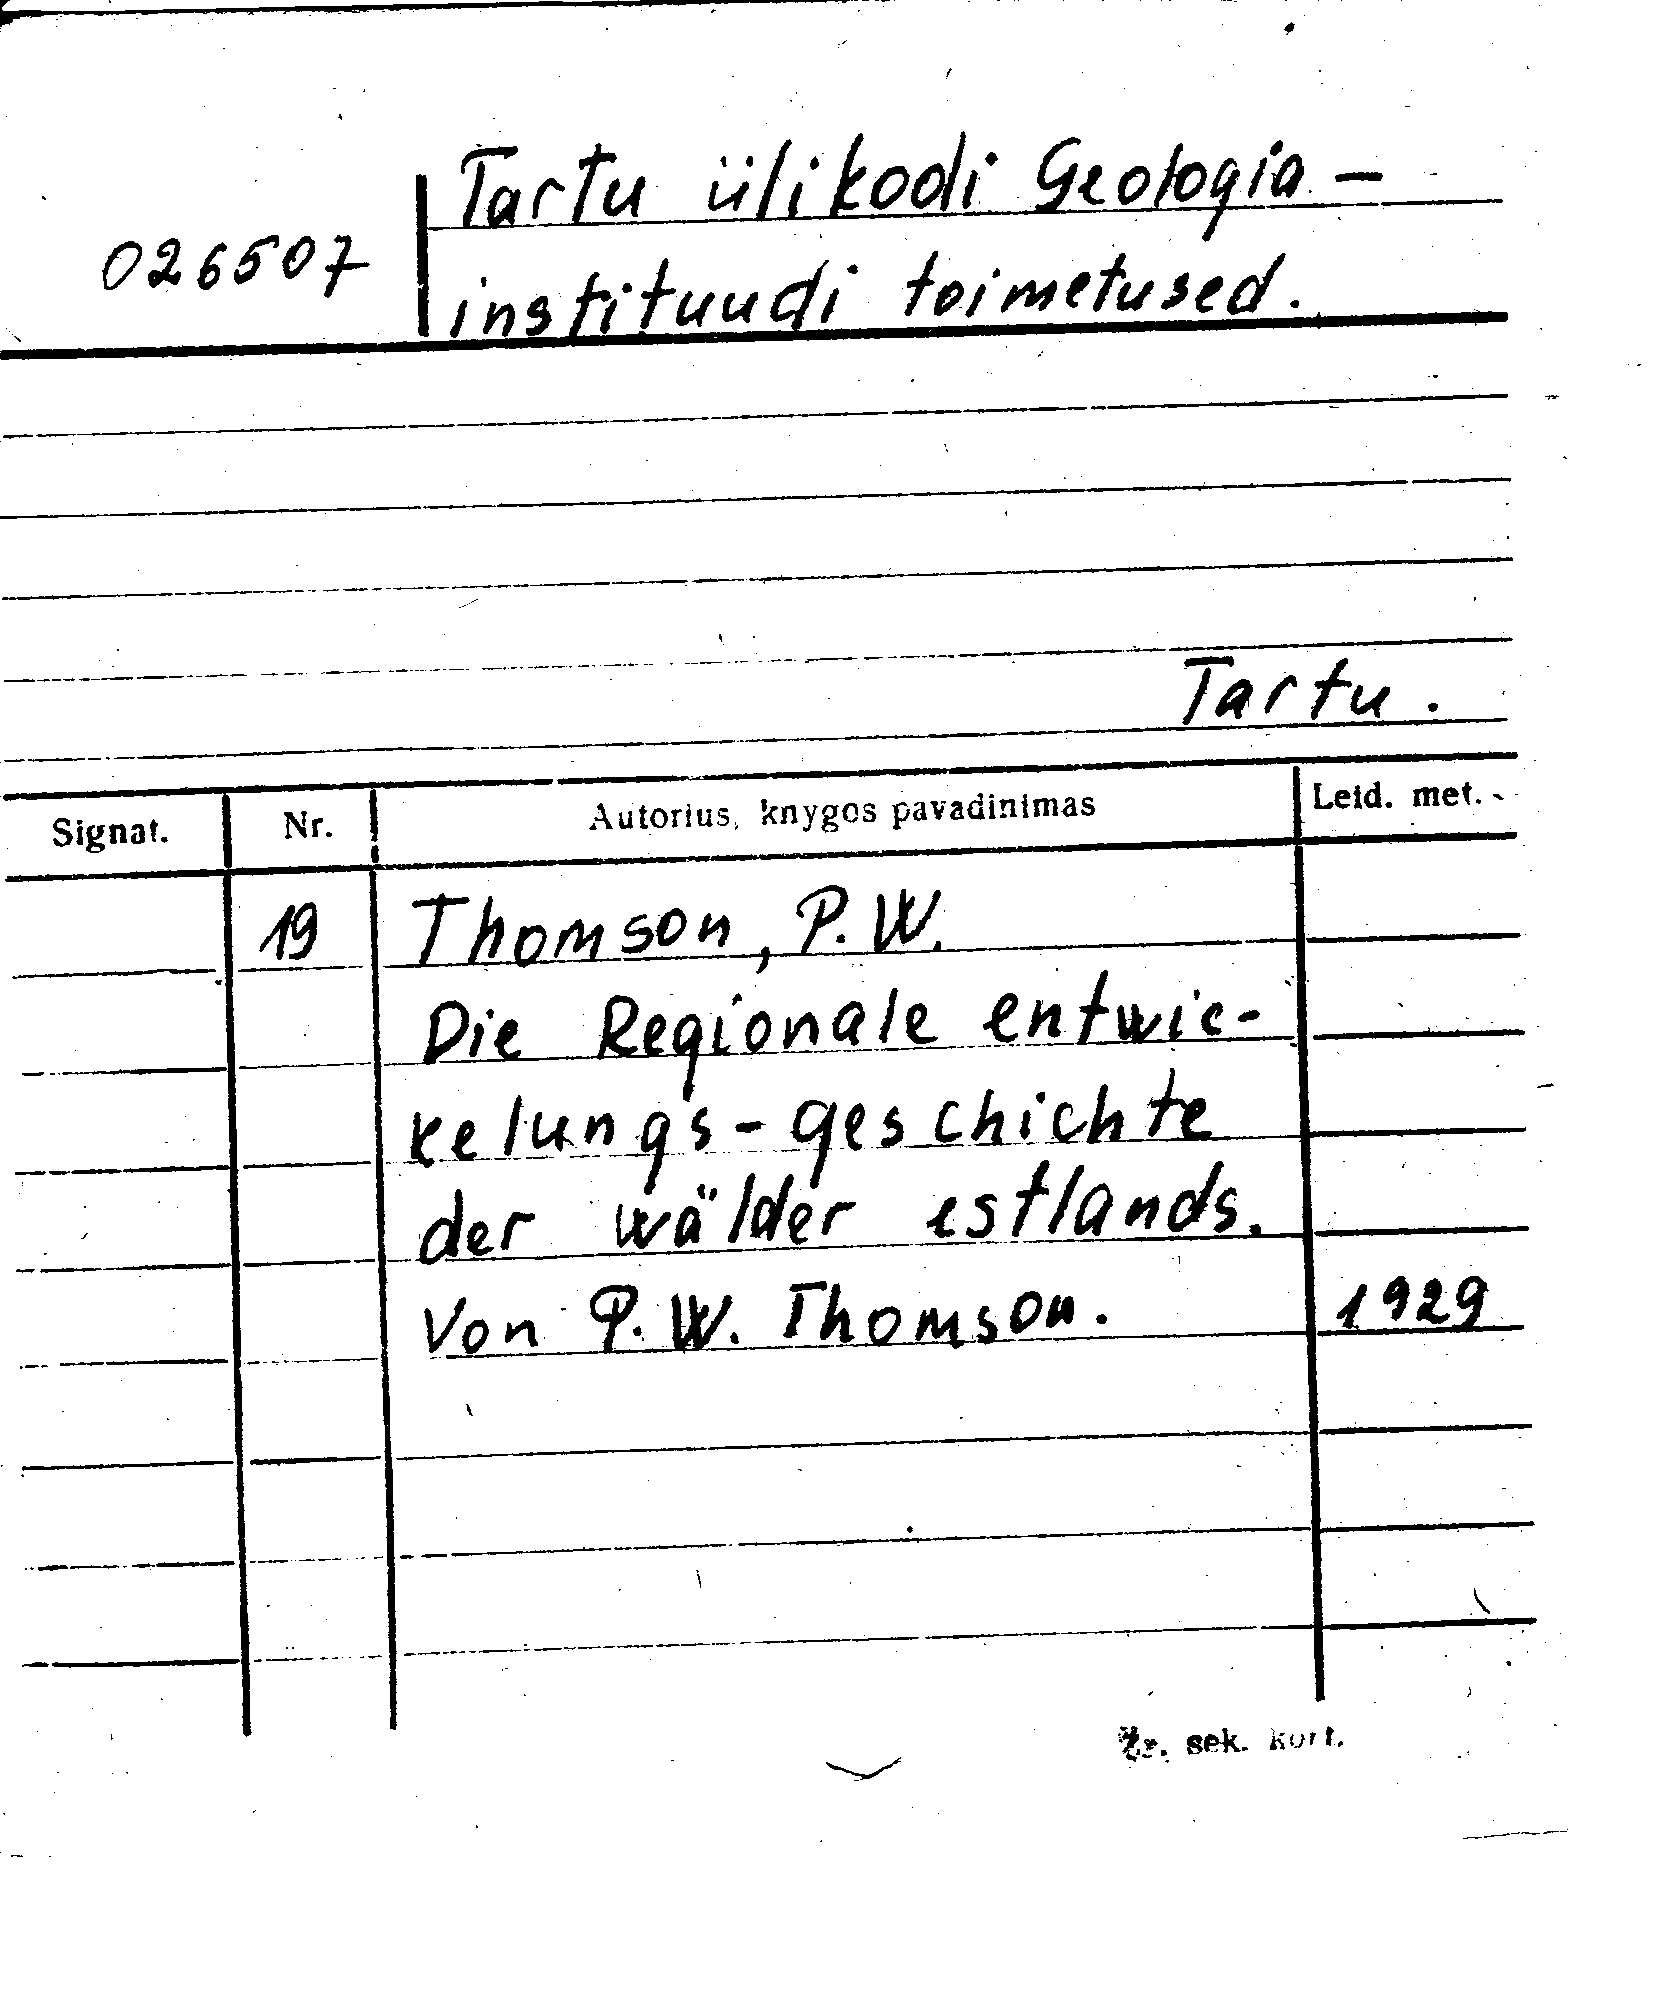 Tartu ülikodi Geologia -
026507
instituudi toimetused.
Tartu.
Signat. Nr. Autorius, knygos pavadinimas Leid. met.
19 Thomson, P. W.
Die Regionale entwic-
kelungs-geschichte
der wälder estlands.
Von P. W. Thomson. 1929
Žr. sek. kort.